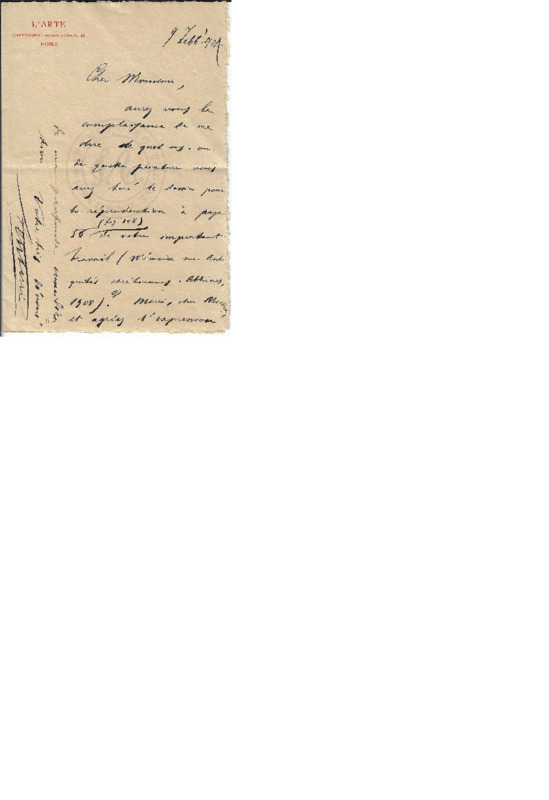 L'ARTE
ROMA
9 Febb°
Cher Monsieur,
aurez vous la
complaisance de me
dire de quel ms. ou
de quelle peinture vous
avez tiré le dessin pour
la réproduction à page
(fig 108)
56 de votre important
travail (Mémoire sur Anti
quités chrétiennes. Athènes,
1908)? Merci, cher Mons.
et agréez l'expression
de ma profonde
Votre très dévoué